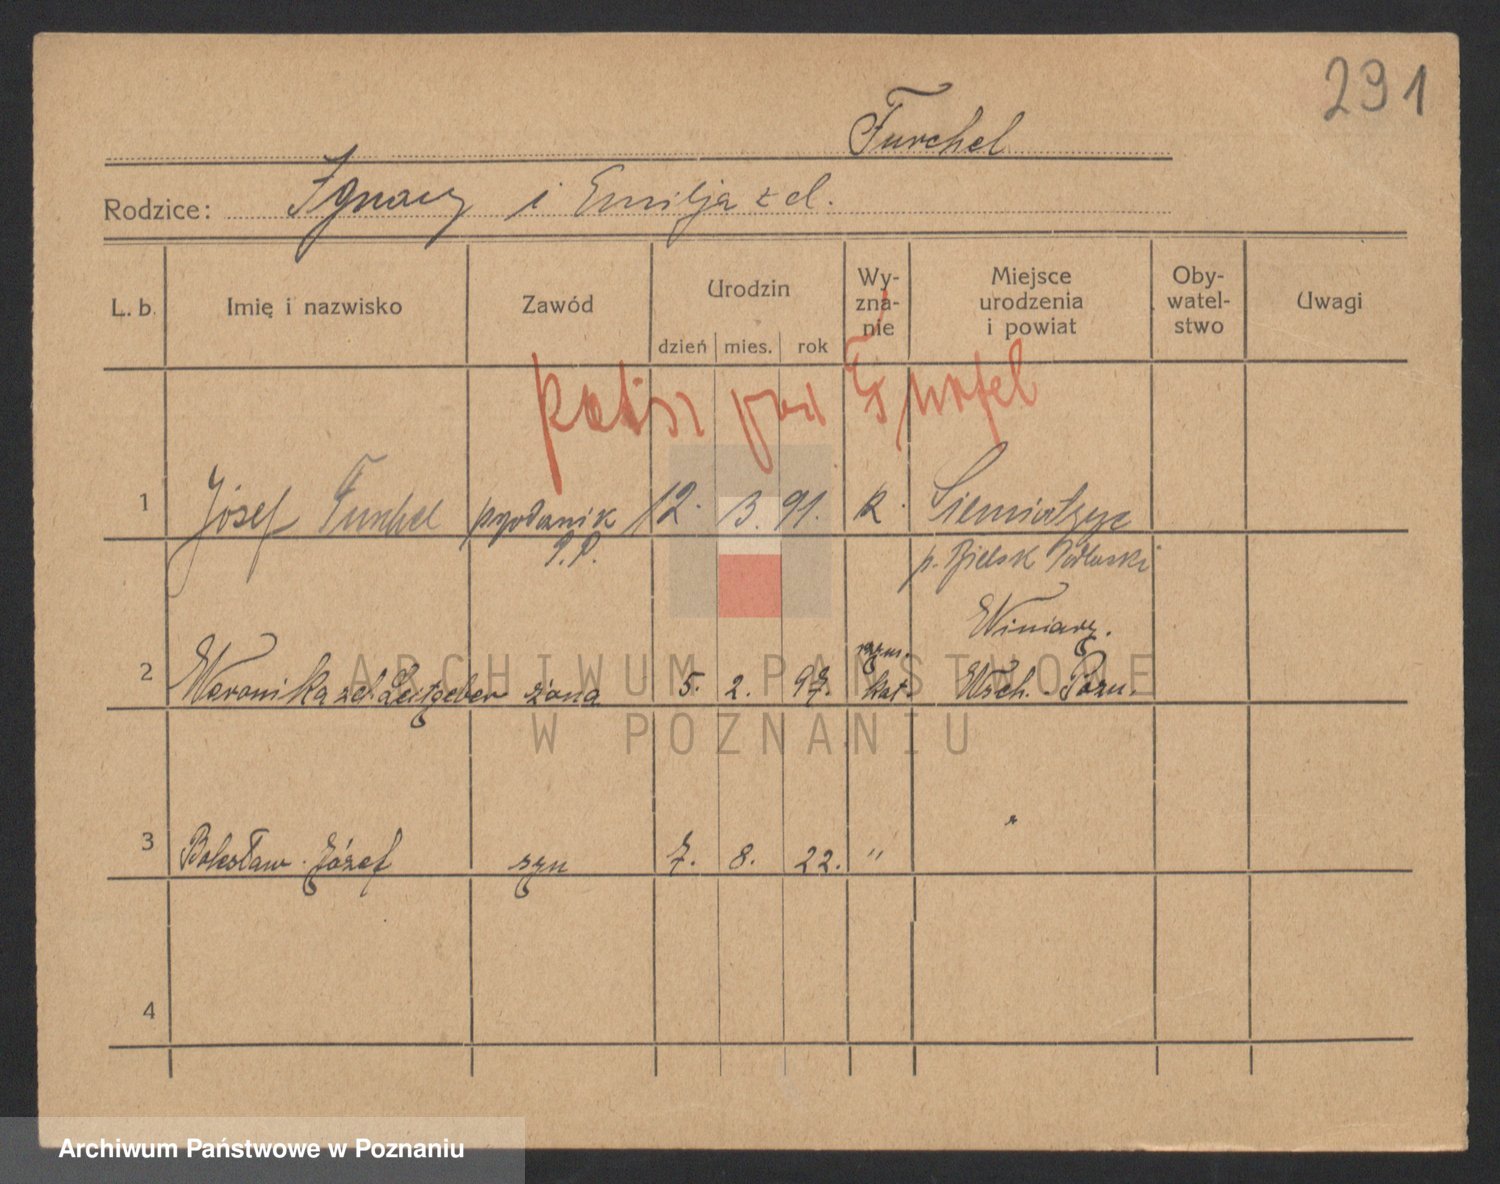 291
Furchel
Rodzice: Ignacy i Emilja z d.
L. b. Imię i nazwisko Zawód Urodzin dzień mies. rok Wy-zna-nie Miejsce urodzenia i powiat Oby-watel-stwo Uwagi
patrz pod
1 Józef Furchel 12. 3. 91. k. Siemiatycze
P.P. p. Bielsk Podlaski
Winiary.
rzym.
2 Weronika z d. Leitgeber żona 5. 2. 97. kat. Wsch. Pozn.
3 Bolesław Józef syn 7. 8. 22. " "
4
ARCHIWUM PAŃSTWOWE
W POZNANIU
Archiwum Państwowe w Poznaniu